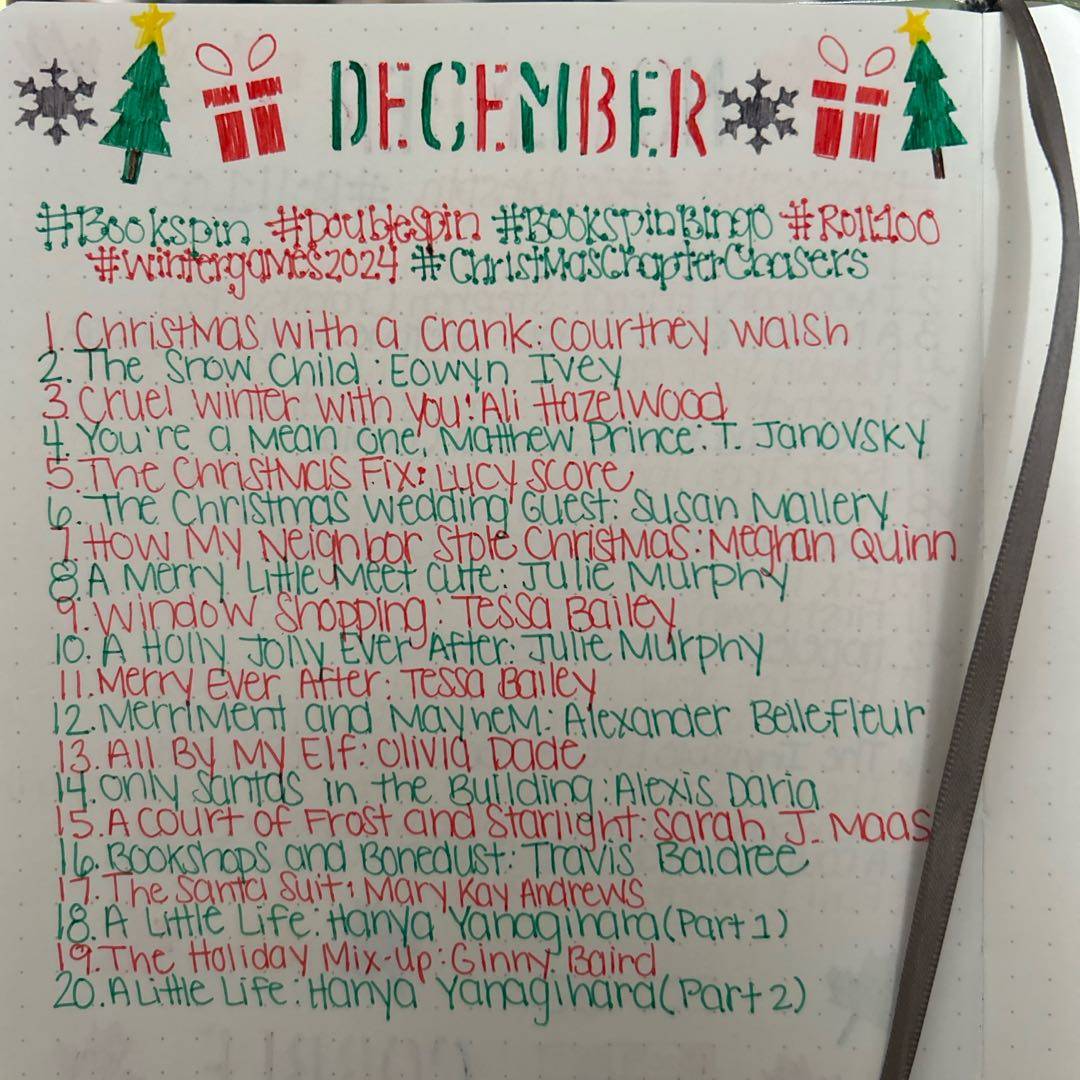 DECEMBER
#Bookspin #Doublespin #BookspinBingo #Roll100
#wintergames2024 #ChristmasChapterChasers
1. Christmas with a Crank: Courtney Walsh
2. The Snow Child: Eowyn Ivey
3. Cruel Winter with You: Ali Hazelwood
4. You're a Mean One, Matthew Prince: T. Janovsky
5. The Christmas Fix: Lucy Score
6. The Christmas Wedding Guest: Susan Mallery
7. How My Neighbor Stole Christmas: Meghan Quinn
8. A Merry Little Meet Cute: Julie Murphy
9. Window Shopping: Tessa Bailey
10. A Holly Jolly Ever After: Julie Murphy
11. Merry Ever After: Tessa Bailey
12. Merriment and Mayhem: Alexander Bellefleur
13. All By My Elf: Olivia Dade
14. Only Santas in the Building: Alexis Daria
15. A Court of Frost and Starlight: Sarah J. Maas
16. Bookshops and Bonedust: Travis Baldree
17. The Santa Suit: Mary Kay Andrews
18. A Little Life: Hanya Yanagihara (Part 1)
19. The Holiday Mix-Up: Ginny Baird
20. A Little Life: Hanya Yanagihara (Part 2)